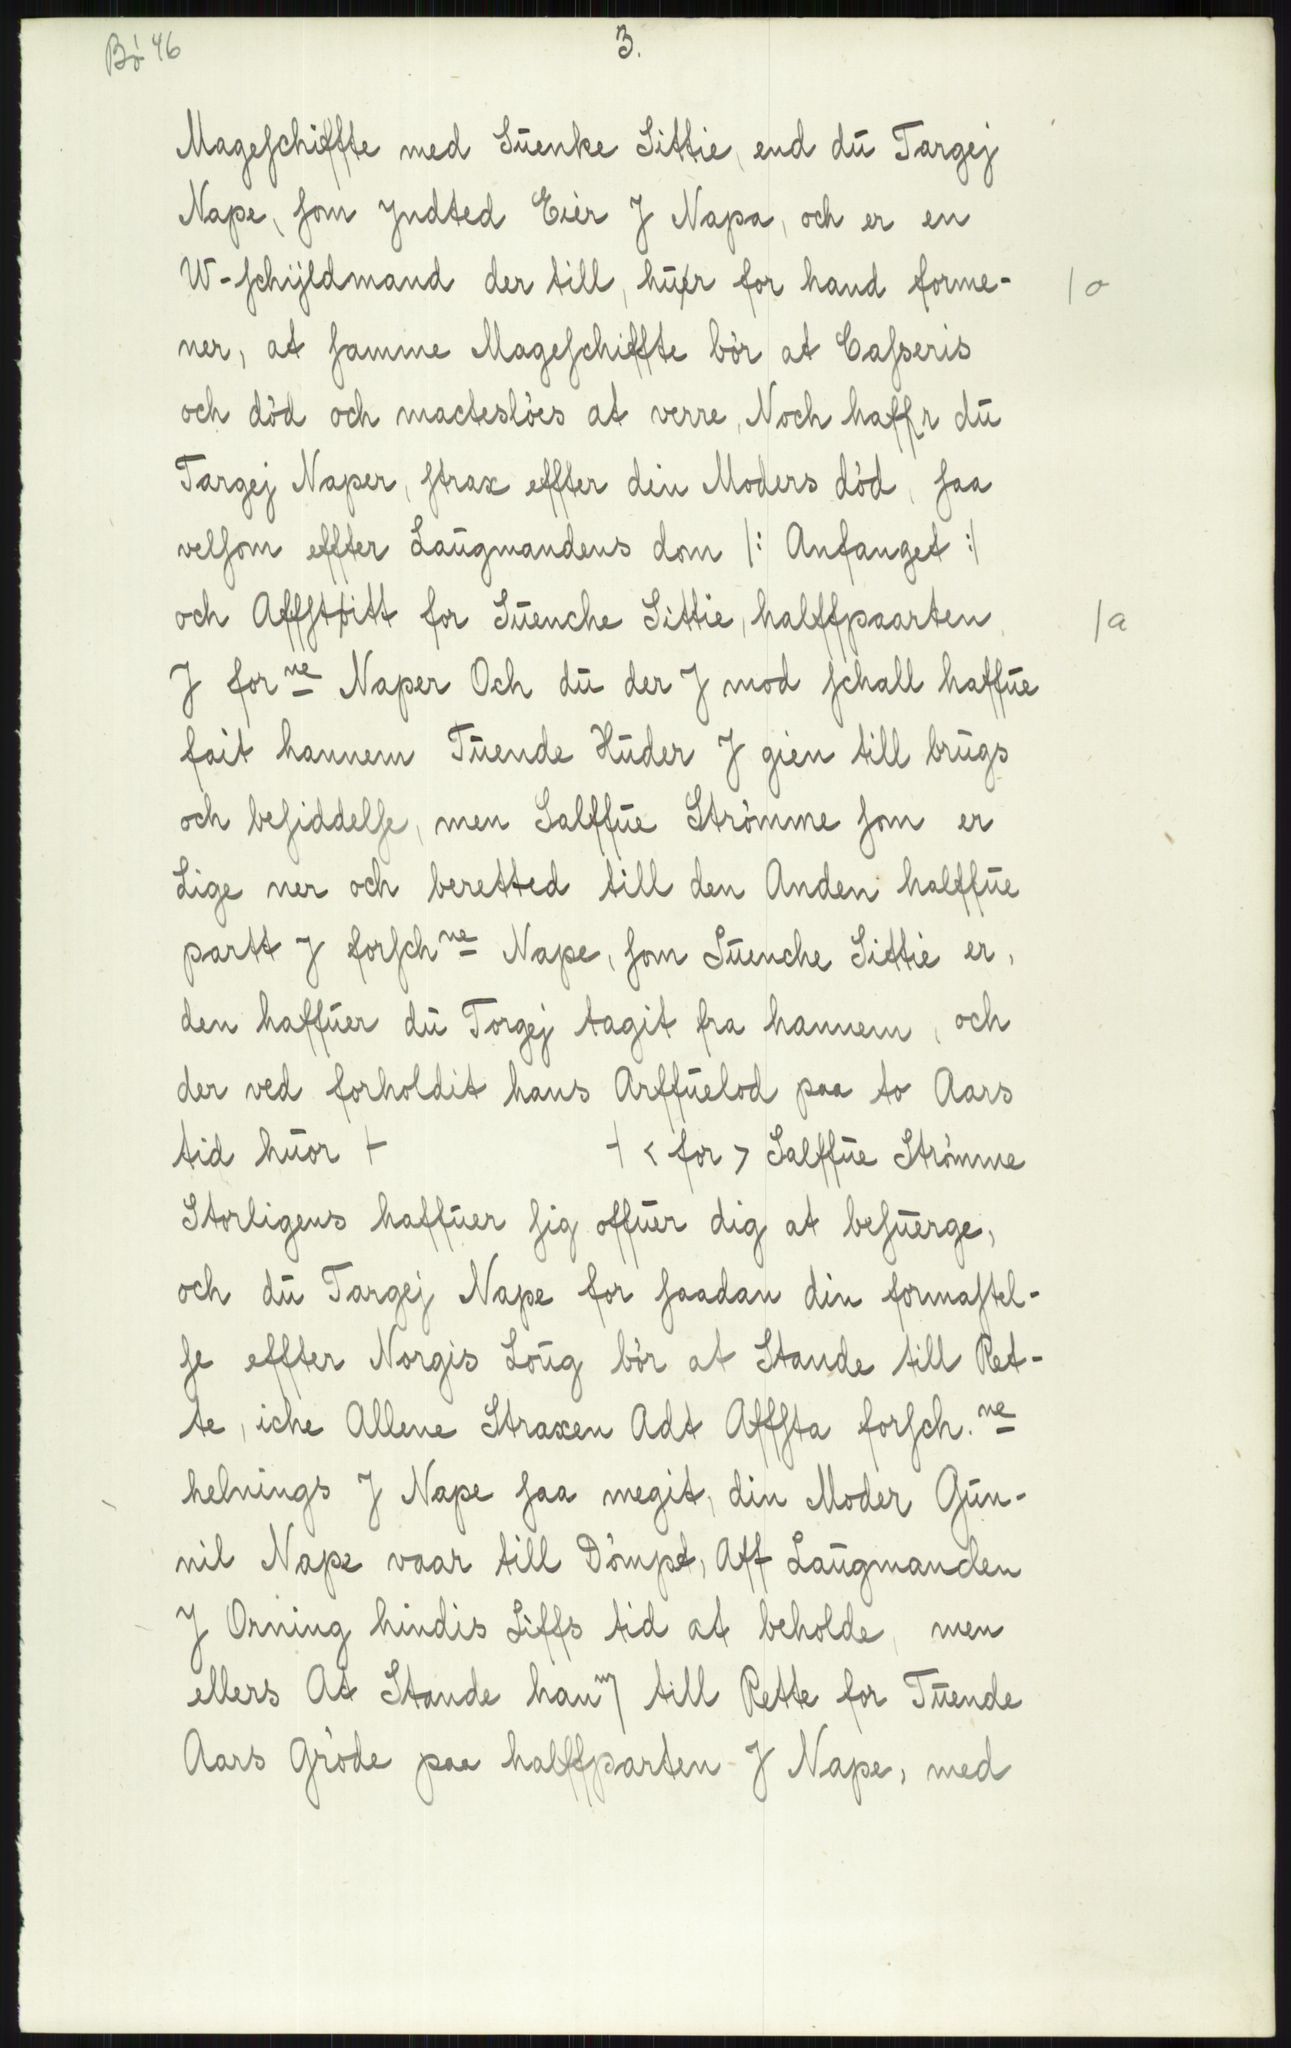 Bö 46
3.
Mageschiffte med Suenke Sittie, end du Targej
Nape, som yndted Eier J Napa, och er en
W-schÿldmand der till, huer for hand forme- / o
ner, at samme Mageschiffte bör at Casseris
och död och macteslöes at verre, Noch haffr du
Targej Naper, strax effter din Moders död, saa
velsom effter Laugmandens dom /: Anfanget :/
och Affstoitt for Suenche Sittie, halffpaarten / a
J for ne Naper Och du der J mod schall haffue
fait hannem Tuende Huder J gien till brugs
och besiddelse, men Salffue Strömme som er
Lige ner och beretted till den Anden halffue
partt J forsch ne Nape, som Suenche Sittie er,
den haffuer du Torgej tagit fra hannem, och
der ved forholdit hans Arffuelod paa to Aars
tid huor ⊢ ⊣ < for > Salffue Strömme
Storligens haffuer sig offuer dig at besuerge,
och du Targej Nape for saadan din formastel-
se effter Norgis Loug bör at Stande till Ret-
te, iche Allene Straxen Adt Affsta forsch. ne
helnings J Nape saa megit, din Moder Gun-
nil Nape vaar till Dömpt, Aff Laugmanden
J Orning hindis Liffs tid at beholde, men
ellers At Stande han m till Rette for Tuende
Aars Gröde paa halffparten J Nape, med